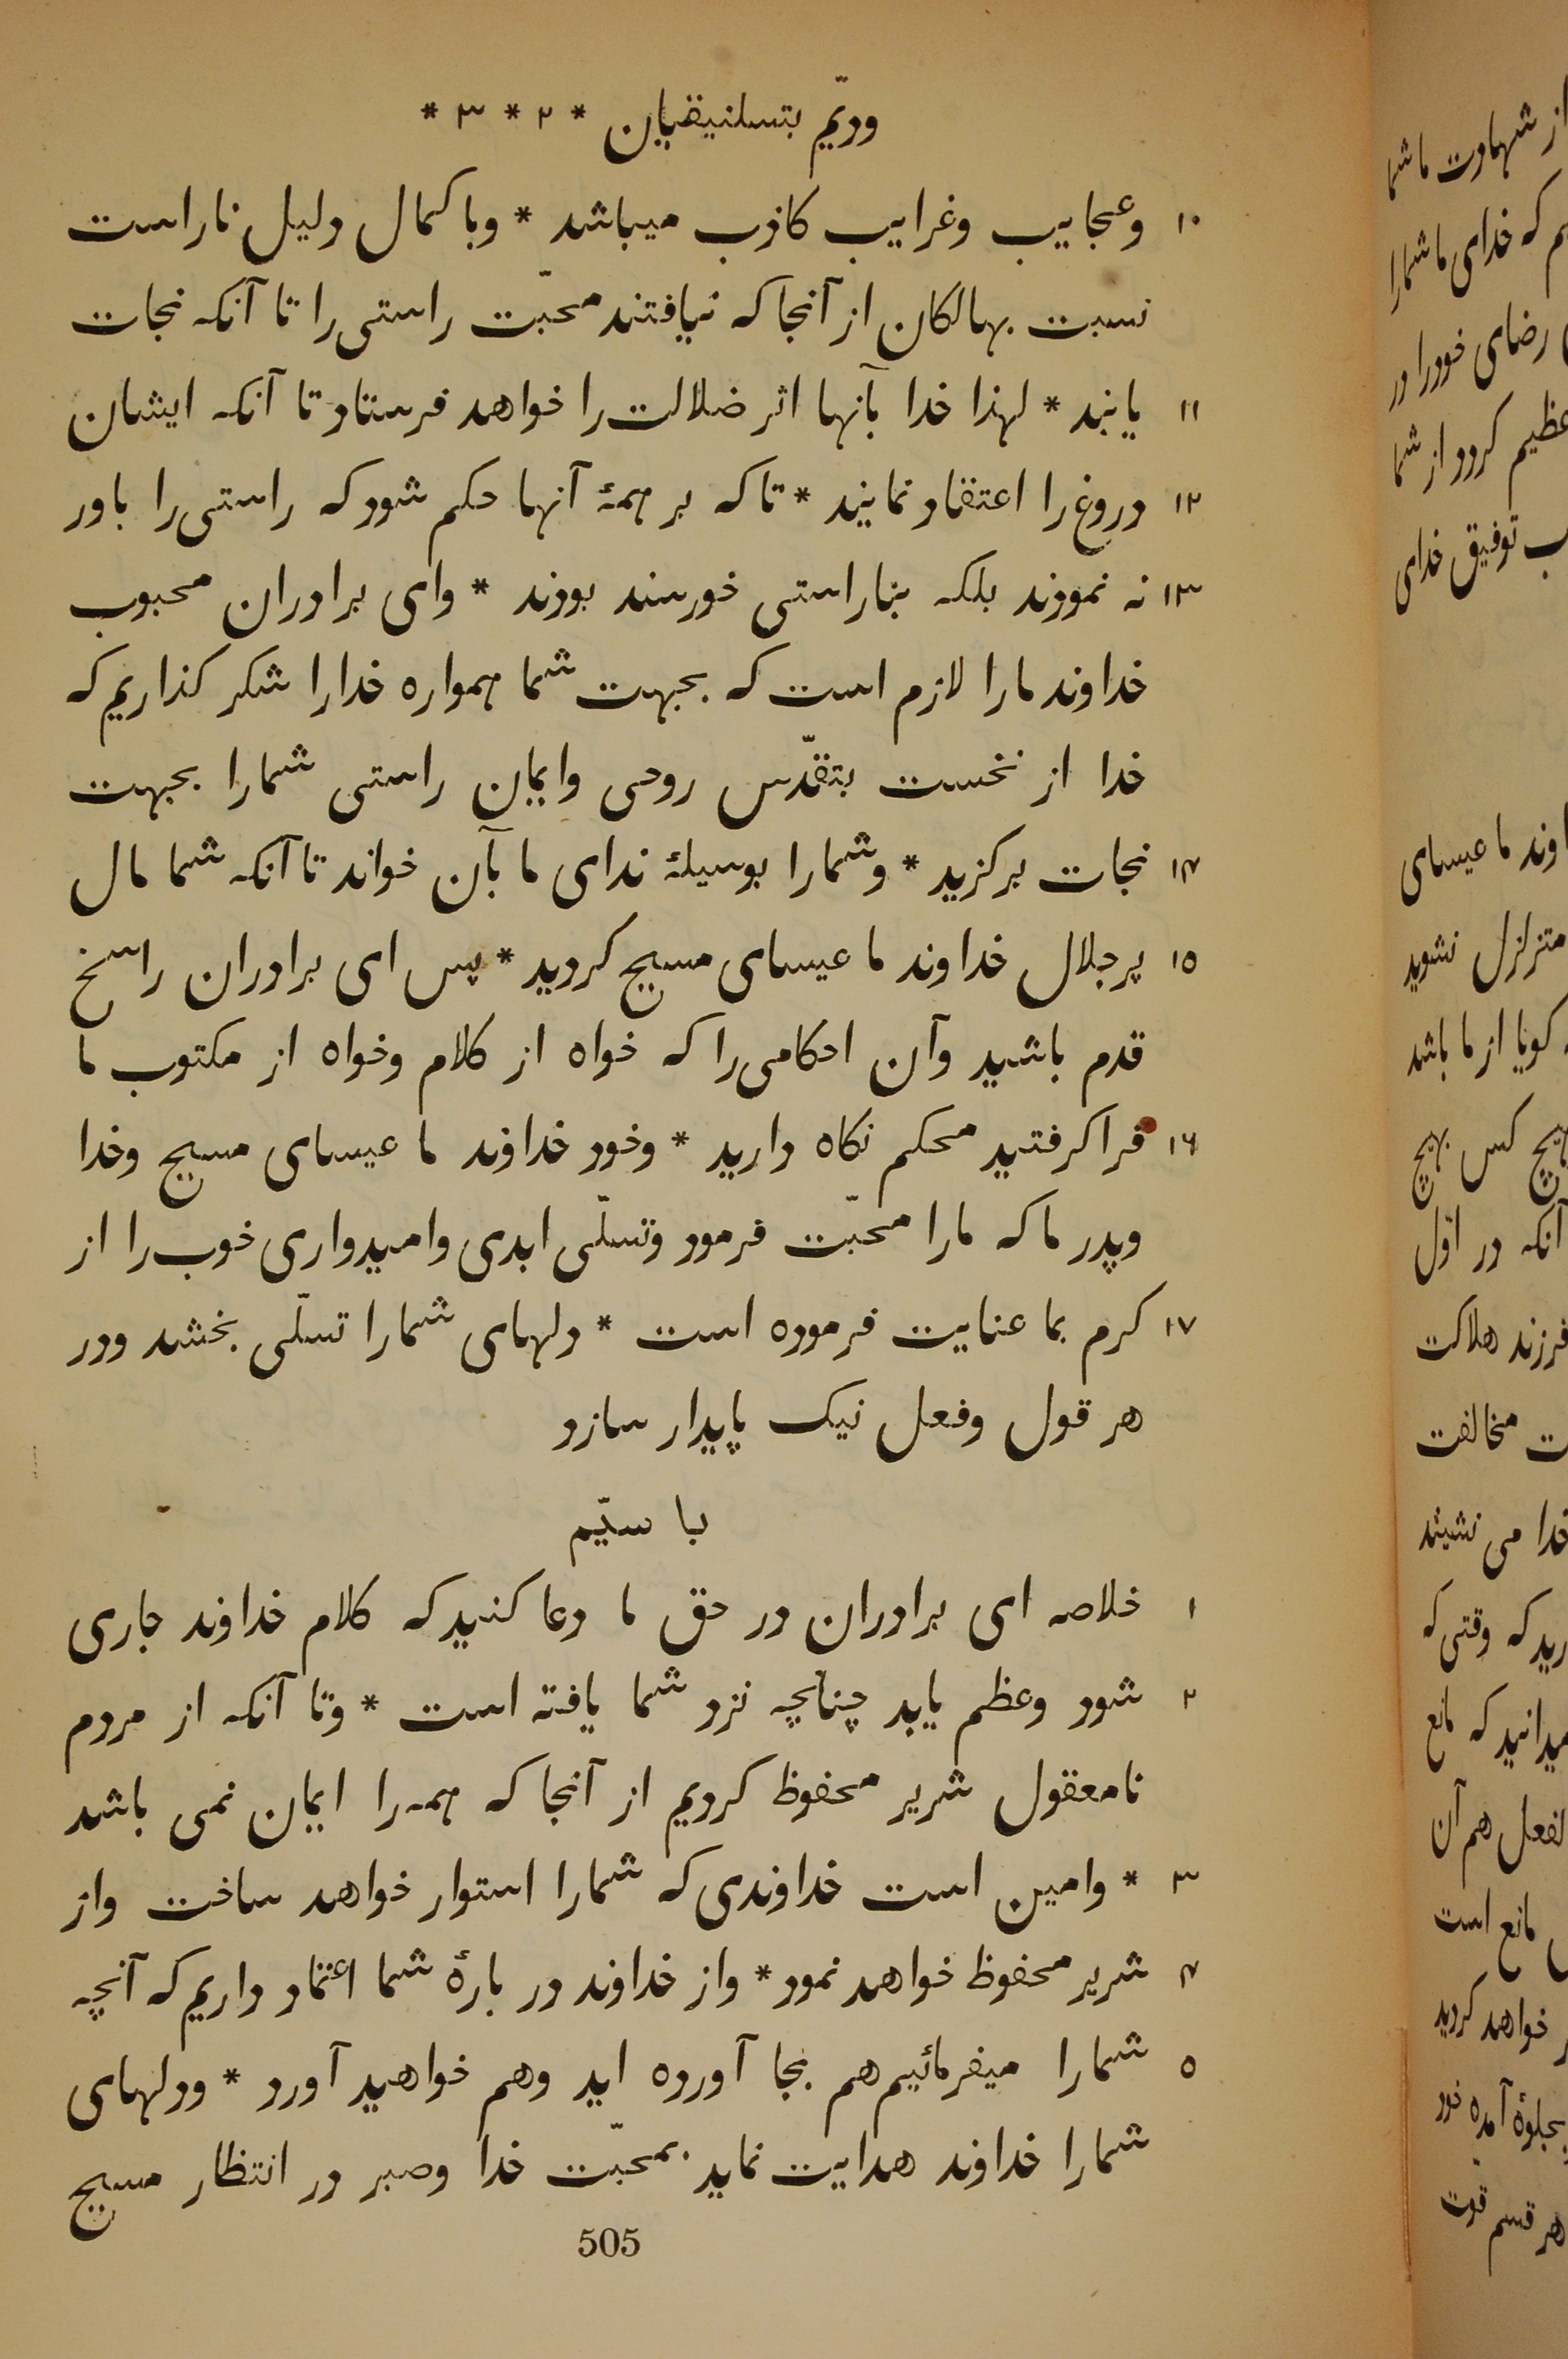 دویّم بتسلنیقیان * ۲ * ۳ *
۱۰ وعجایب وغرایب کاذب میباشد * وبا کمال دلیل ناراست
نسبت بهالکان از آنجا که نیافتند محبّت راستی را تا آنکه نجات
۱۱ یابند * لهذا خدا بآنها اثر ضلالت را خواهد فرستاد تا آنکه ایشان
۱۲ دروغ را اعتقاد نمایند * تا که بر همهٔ آنها حکم شود که راستی را باور
۱۳ نه نمودند بلکه بناراستی خورسند بودند * وای برادران محبوب
خداوند مارا لازم است که بجهت شما همواره خدارا شکر کذاریم که
خدا از نخست بتقدّس روحی وایمان راستی شمارا بجهت
۱۴ نجات برکزید * وشمارا بوسیلهٔ ندای ما بآن خواند تا آنکه شما مال
۱۵ پرجلال خداوند ما عیسای مسیح کردید * پس ای برادران راسخ
قدم باشید وآن احکامی را که خواه از کلام وخواه از مکتوب ما
۱۶ فرا کرفتید محکم نکاه دارید * وخود خداوند ما عیسای مسیح وخدا
وپدر ما که مارا محبّت فرمود وتسلّی ابدی وامیدواری خوب را از
۱۷ کرم بما عنایت فرموده است * دلهای شمارا تسلّی بخشد ودر
هر قول وفعل نیک پایدار سازد
با سیّم
۱ خلاصه ای برادران در حق ما دعا کنید که کلام خداوند جاری
۲ شود وعظم یابد چنانچه نزد شما یافته است * وتا آنکه از مردم
نامعقول شریر محفوظ کردیم از آنجا که همه را ایمان نمی باشد
۳ * وامین است خداوندی که شمارا استوار خواهد ساخت واز
۴ شریر محفوظ خواهد نمود * واز خداوند در بارهٔ شما اعتماد داریم که آنچه
۵ شمارا میفرمائیم هم بجا آورده اید وهم خواهید آورد * ودلهای
شمارا خداوند هدایت نماید بمحبّت خدا وصبر در انتظار مسیح
505
از شهادت ما شما
که خدای ما شمارا
رضای خودرا در
عظیم کردد از شما
توفیق خدای
ما عیسای
متزلزل نشوید
کویا از ما باشد
هیچ کس بهیچ
آنکه در اوّل
فرزند هلاکت
مخالفت
خدا می نشیند
که وقتی که
میدانید که مانع
هم آن
مانع است
خواهد کردید
بجلوهٔ آمده خود
هر قسم قوت